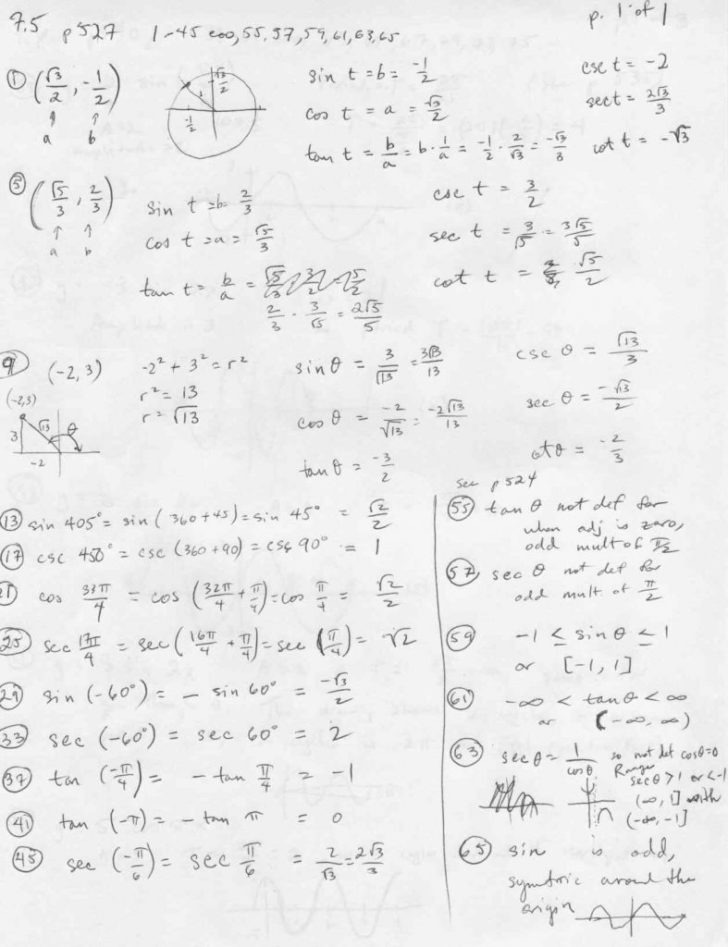 7.5 p527 1-45 eoo, 55, 57, 59, 61, 63, 65
p. 1 of 1
① (√3/2, -1/2)
↑ ↑
a b
√3/2
-1/2
sin t = b = -1/2
cos t = a = √3/2
tan t = b/a = b · 1/a = -1/2 · 2/√3 = -√3/3
csc t = -2
sec t = 2√3/3
cot t = -√3
⑤ (√5/3, 2/3)
↑ ↑
a b
sin t = b = 2/3
cos t = a = √5/3
tan t = b/a =
2/3 · 3/√5 = 2√5/5
csc t = 3/2
sec t = 3/√5 = 3√5/5
cot t = √5/2
⑨ (-2, 3)
(-2,3)
3 √13 θ
-2
-2² + 3² = r²
r² = 13
r = √13
sin θ = 3/√13 = 3√13/13
cos θ = -2/√13 = -2√13/13
tan θ = -3/2
csc θ = √13/3
sec θ = -√13/2
cot θ = -2/3
⑬ sin 405° = sin (360+45) = sin 45° = √2/2
⑰ csc 450° = csc (360+90) = csc 90° = 1
㉑ cos 33π/4 = cos (32π/4 + π/4) = cos π/4 = √2/2
㉕ sec 17π/4 = sec (16π/4 + π/4) = sec (π/4) = √2
㉙ sin (-60°) = - sin 60° = -√3/2
㉝ sec (-60°) = sec 60° = 2
㊲ tan (-π/4) = - tan π/4 = -1
㊶ tan (-π) = - tan π = 0
㊺ sec (-π/6) = sec π/6 = 2/√3 = 2√3/3
see p524
(55) tan θ not def for
when adj is zero,
odd mult of π/2
(57) sec θ not def for
odd mult of π/2
(59) -1 ≤ sin θ ≤ 1
or [-1, 1]
(61) -∞ < tan θ < ∞
or (-∞, ∞)
(63) sec θ = 1/cos θ so not def cos θ = 0
Range
sec θ > 1 or < -1
(∞, 1] with
(-∞, -1]
(65) sin is odd,
symtric around the
origin